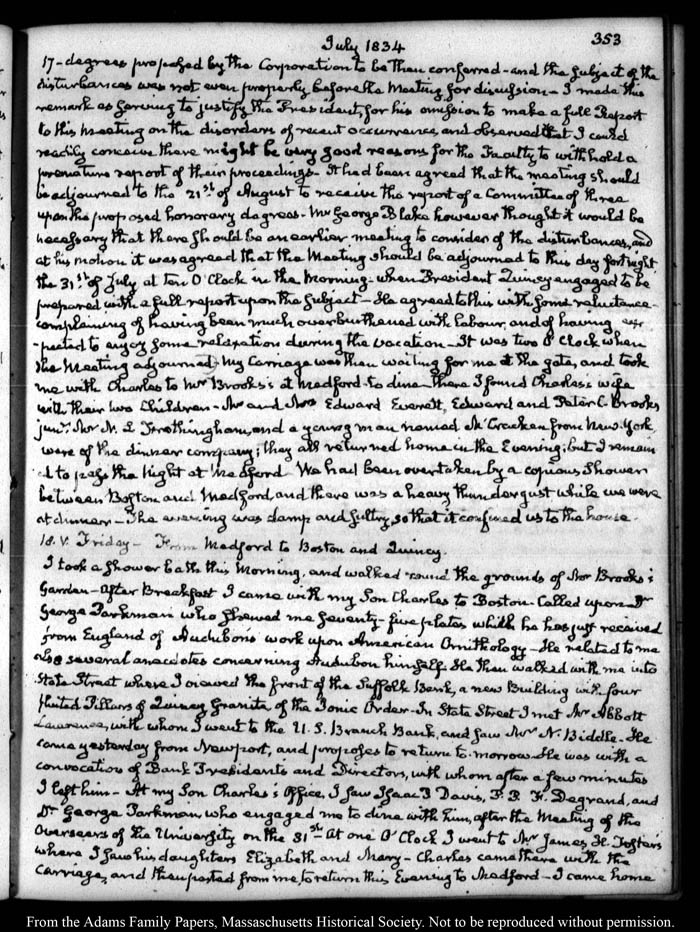 July 1834
353
17- degrees proposed by the Corporation to be then conferred - and the subject of the
disturbances was not even properly before the Meeting for discussion - I made this
remark as serving to justify the President, for his omission to make a full Report
to this meeting on the disorders of recent occurrence, and observed that I could
readily conceive there might be very good reasons for the Faculty, to withhold a
premature report of their proceedings - It had been agreed that the meeting should
be adjourned to the 21st of August to receive the report of a Committee of three
upon the proposed honorary degrees - Mr George Blake however thought it would be
necessary that there should be an earlier meeting to consider of the disturbances, and
at his motion it was agreed that the Meeting should be adjourned to this day fortnight
the 31st of July at ten O'Clock in the Morning - when President Quincy engaged to be
prepared with a full report upon the subject - He agreed to this with some reluctance -
complaining of having been much overburthened with labour, and of having ex-
-pected to enjoy some relaxation during the vacation - It was two O'Clock when
the Meeting adjourned - My Carriage was then waiting for me at the gate, and took
me with Charles to Mr Brooks's at Medford - to dine - there I found Charles's wife
with their two Children - Mr and Mrs Edward Everett, Edward and Peter C. Brooks
junr. Mr N. L Frothingham, and a young man named McCracken from New-York,
were of the dinner company; they all returned home in the Evening; but I remain
-ed to pass the Night at Medford We had been overtaken by a copious shower
between Boston and Medford, and there was a heavy thundergust while we were
at dinner - The evening was damp and sultry, so that it confined us to the house.
18. V. Friday - From Medford to Boston and Quincy.
I took a shower bath this Morning, and walked round the grounds of Mr Brooks's
Garden - After Breakfast I came with my Son Charles to Boston - Called upon Dr
George Parkman who shewed me seventy-five plates which he has just received
from England of Audubon's work upon American Ornithology - He related to me
also several anecdotes concerning Audubon himself. He then walked with me into
State Street where I viewed the front of the Suffolk Bank, a new Building with four
fluted Pillars of Quincy Granite, of the Ionic Order - In State Street I met Mr Abbott
Lawrence, with whom I went to the U. S. Branch Bank, and saw Mr N. Biddle - He
came yesterday from Newport, and proposes to return to-morrow - He was with a
convocation of Bank Presidents and Directors, with whom after a few minutes
I left him - At my Son Charles's Office, I saw Isaac P Davis, P. P. F. Degrand, and
Dr George Parkman, who engaged me to dine with him, after the Meeting of the
Overseers of the University on the 31st At one O'Clock I went to Mr James H. Foster's
where I saw his daughters Elizabeth and Mary - Charles came there with the
Carriage, and then parted from me, to return this Evening to Medford - I came home
From the Adams Family Papers, Massachusetts Historical Society. Not to be reproduced without permission.